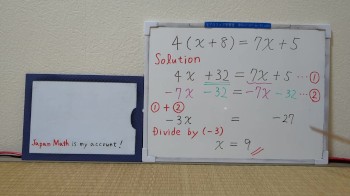 4(x+8)=7x+5
Solution
4x +32 = 7x + 5 ... ①
-7x -32 = -7x -32 ... ②
① + ②
-3x = -27
Divide by (-3)
x = 9
Japan Math is my account!